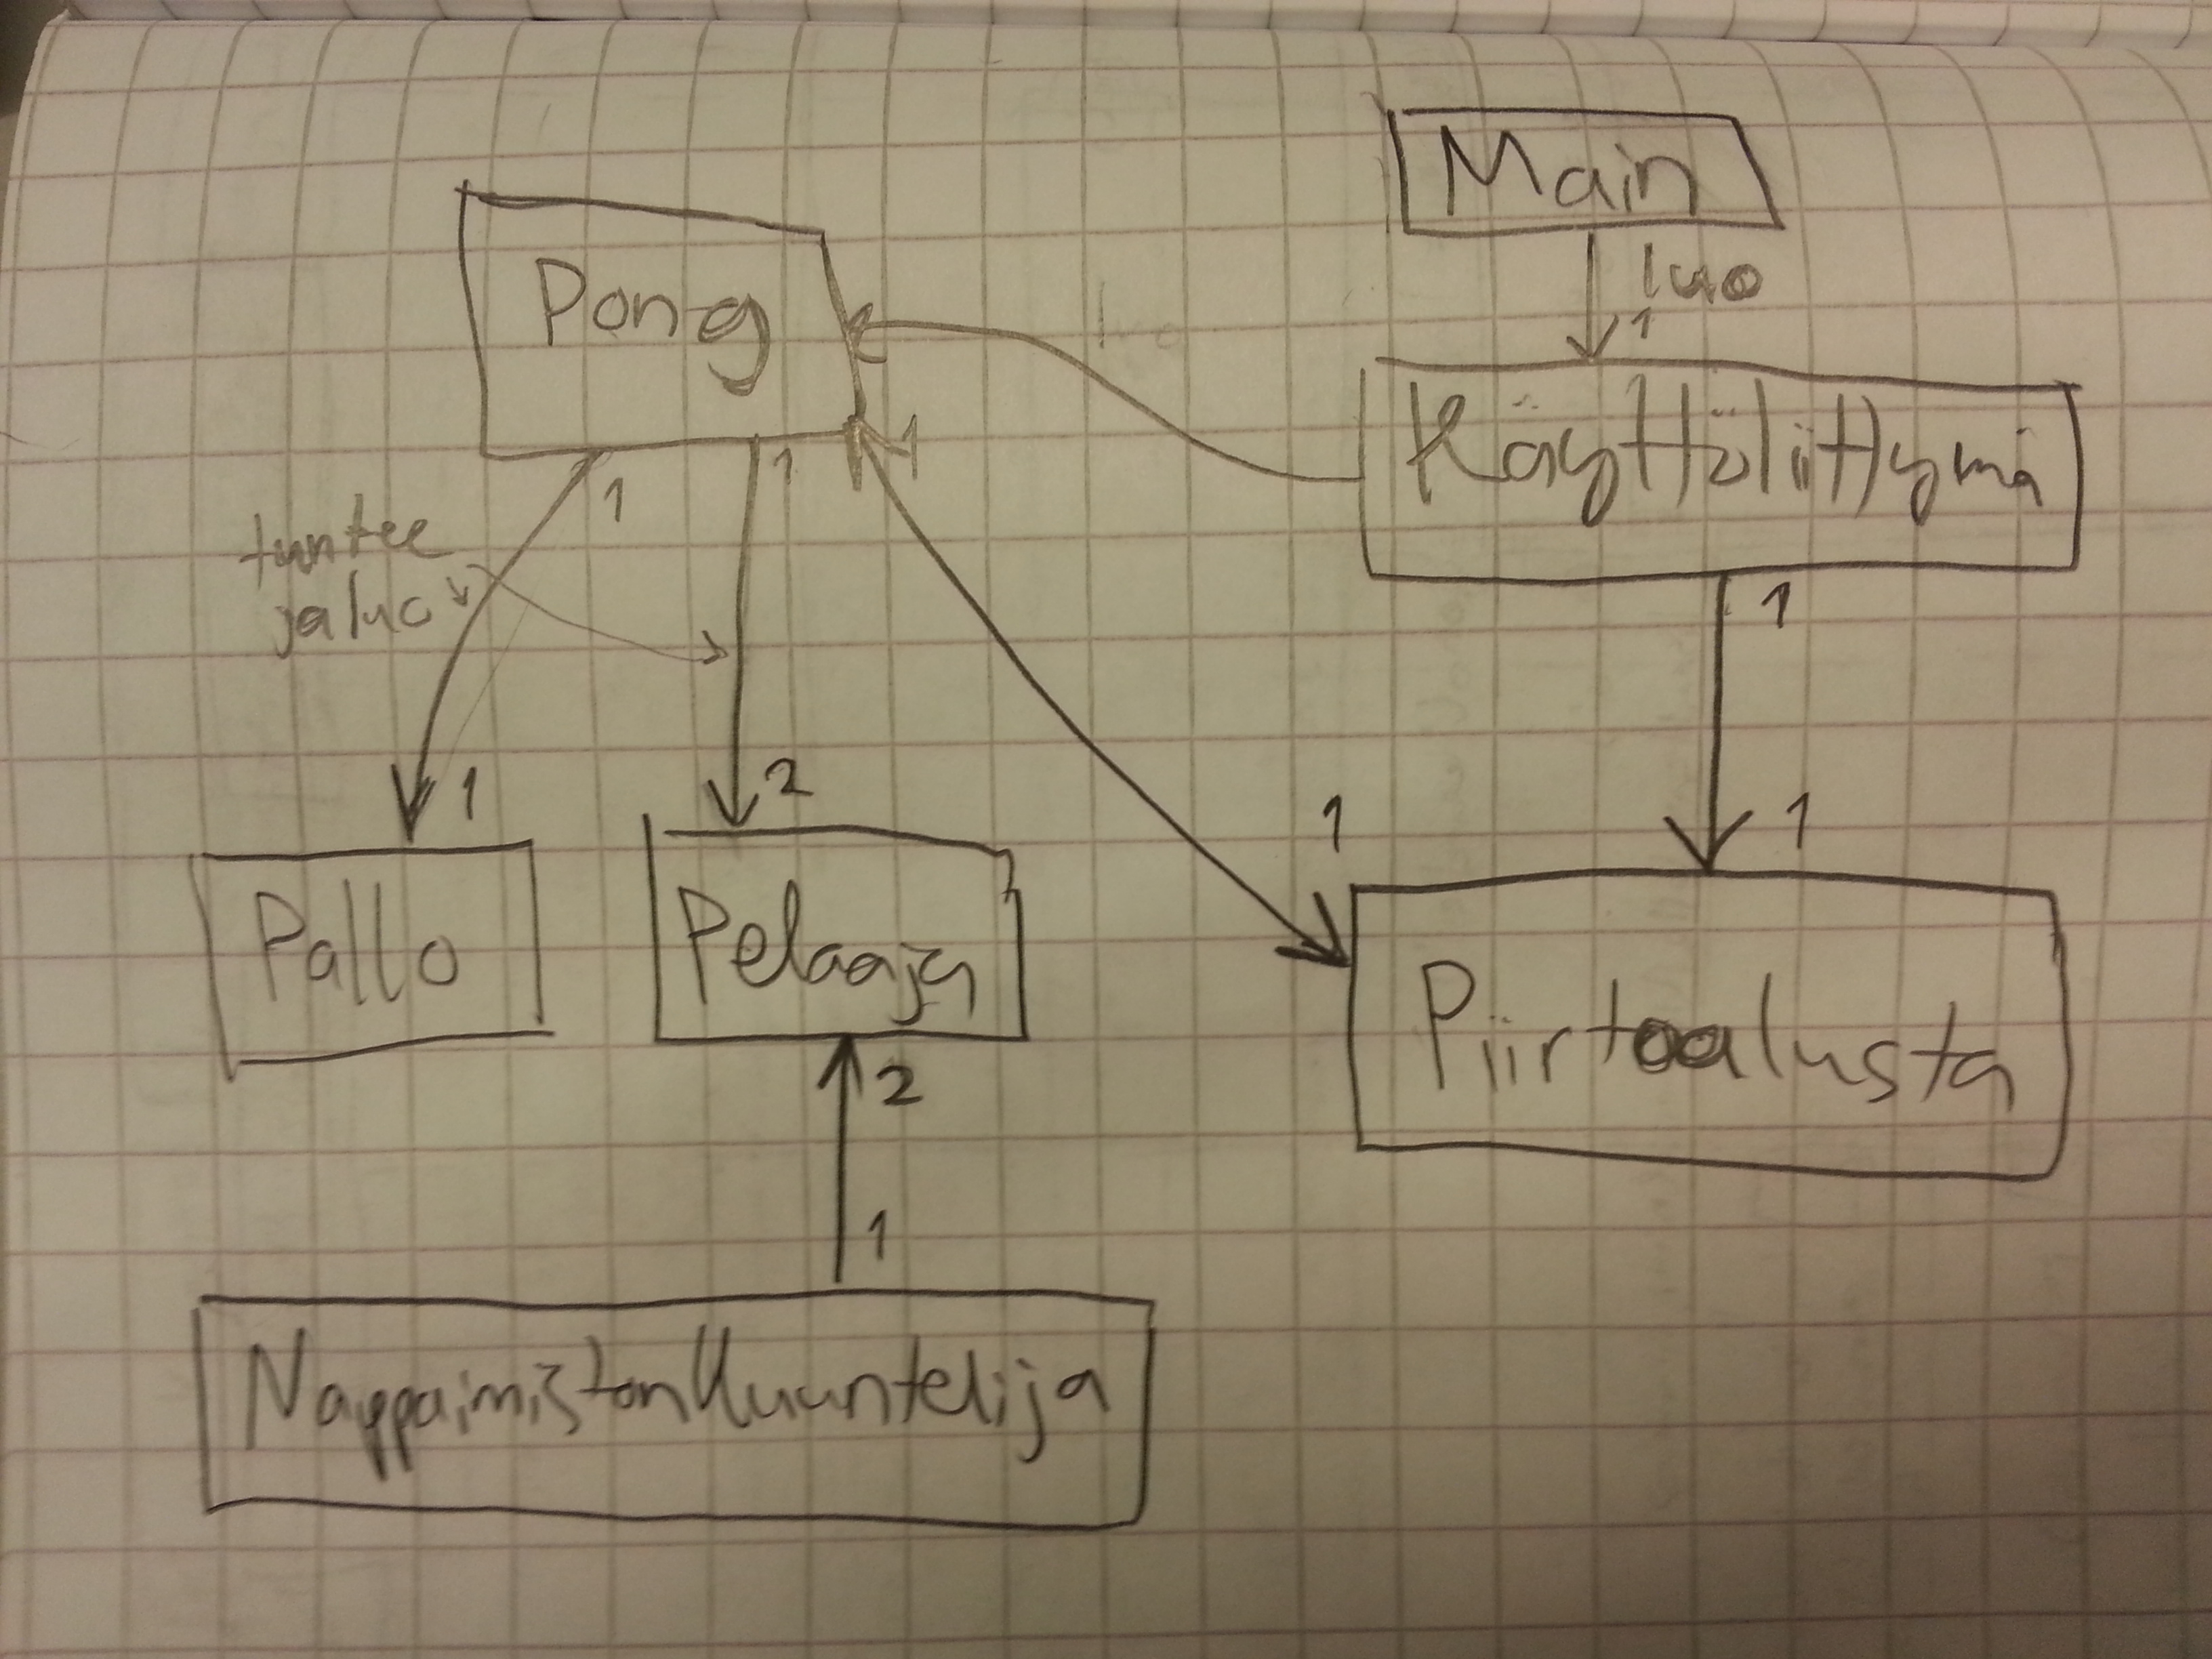 Main
luo
1
Pong
luo
Käyttöliittymä
1
1
1
1
tuntee
ja luo
1
2
1
1
Pallo
Pelaaja
Piirtoalusta
2
1
NappaimistonKuuntelija